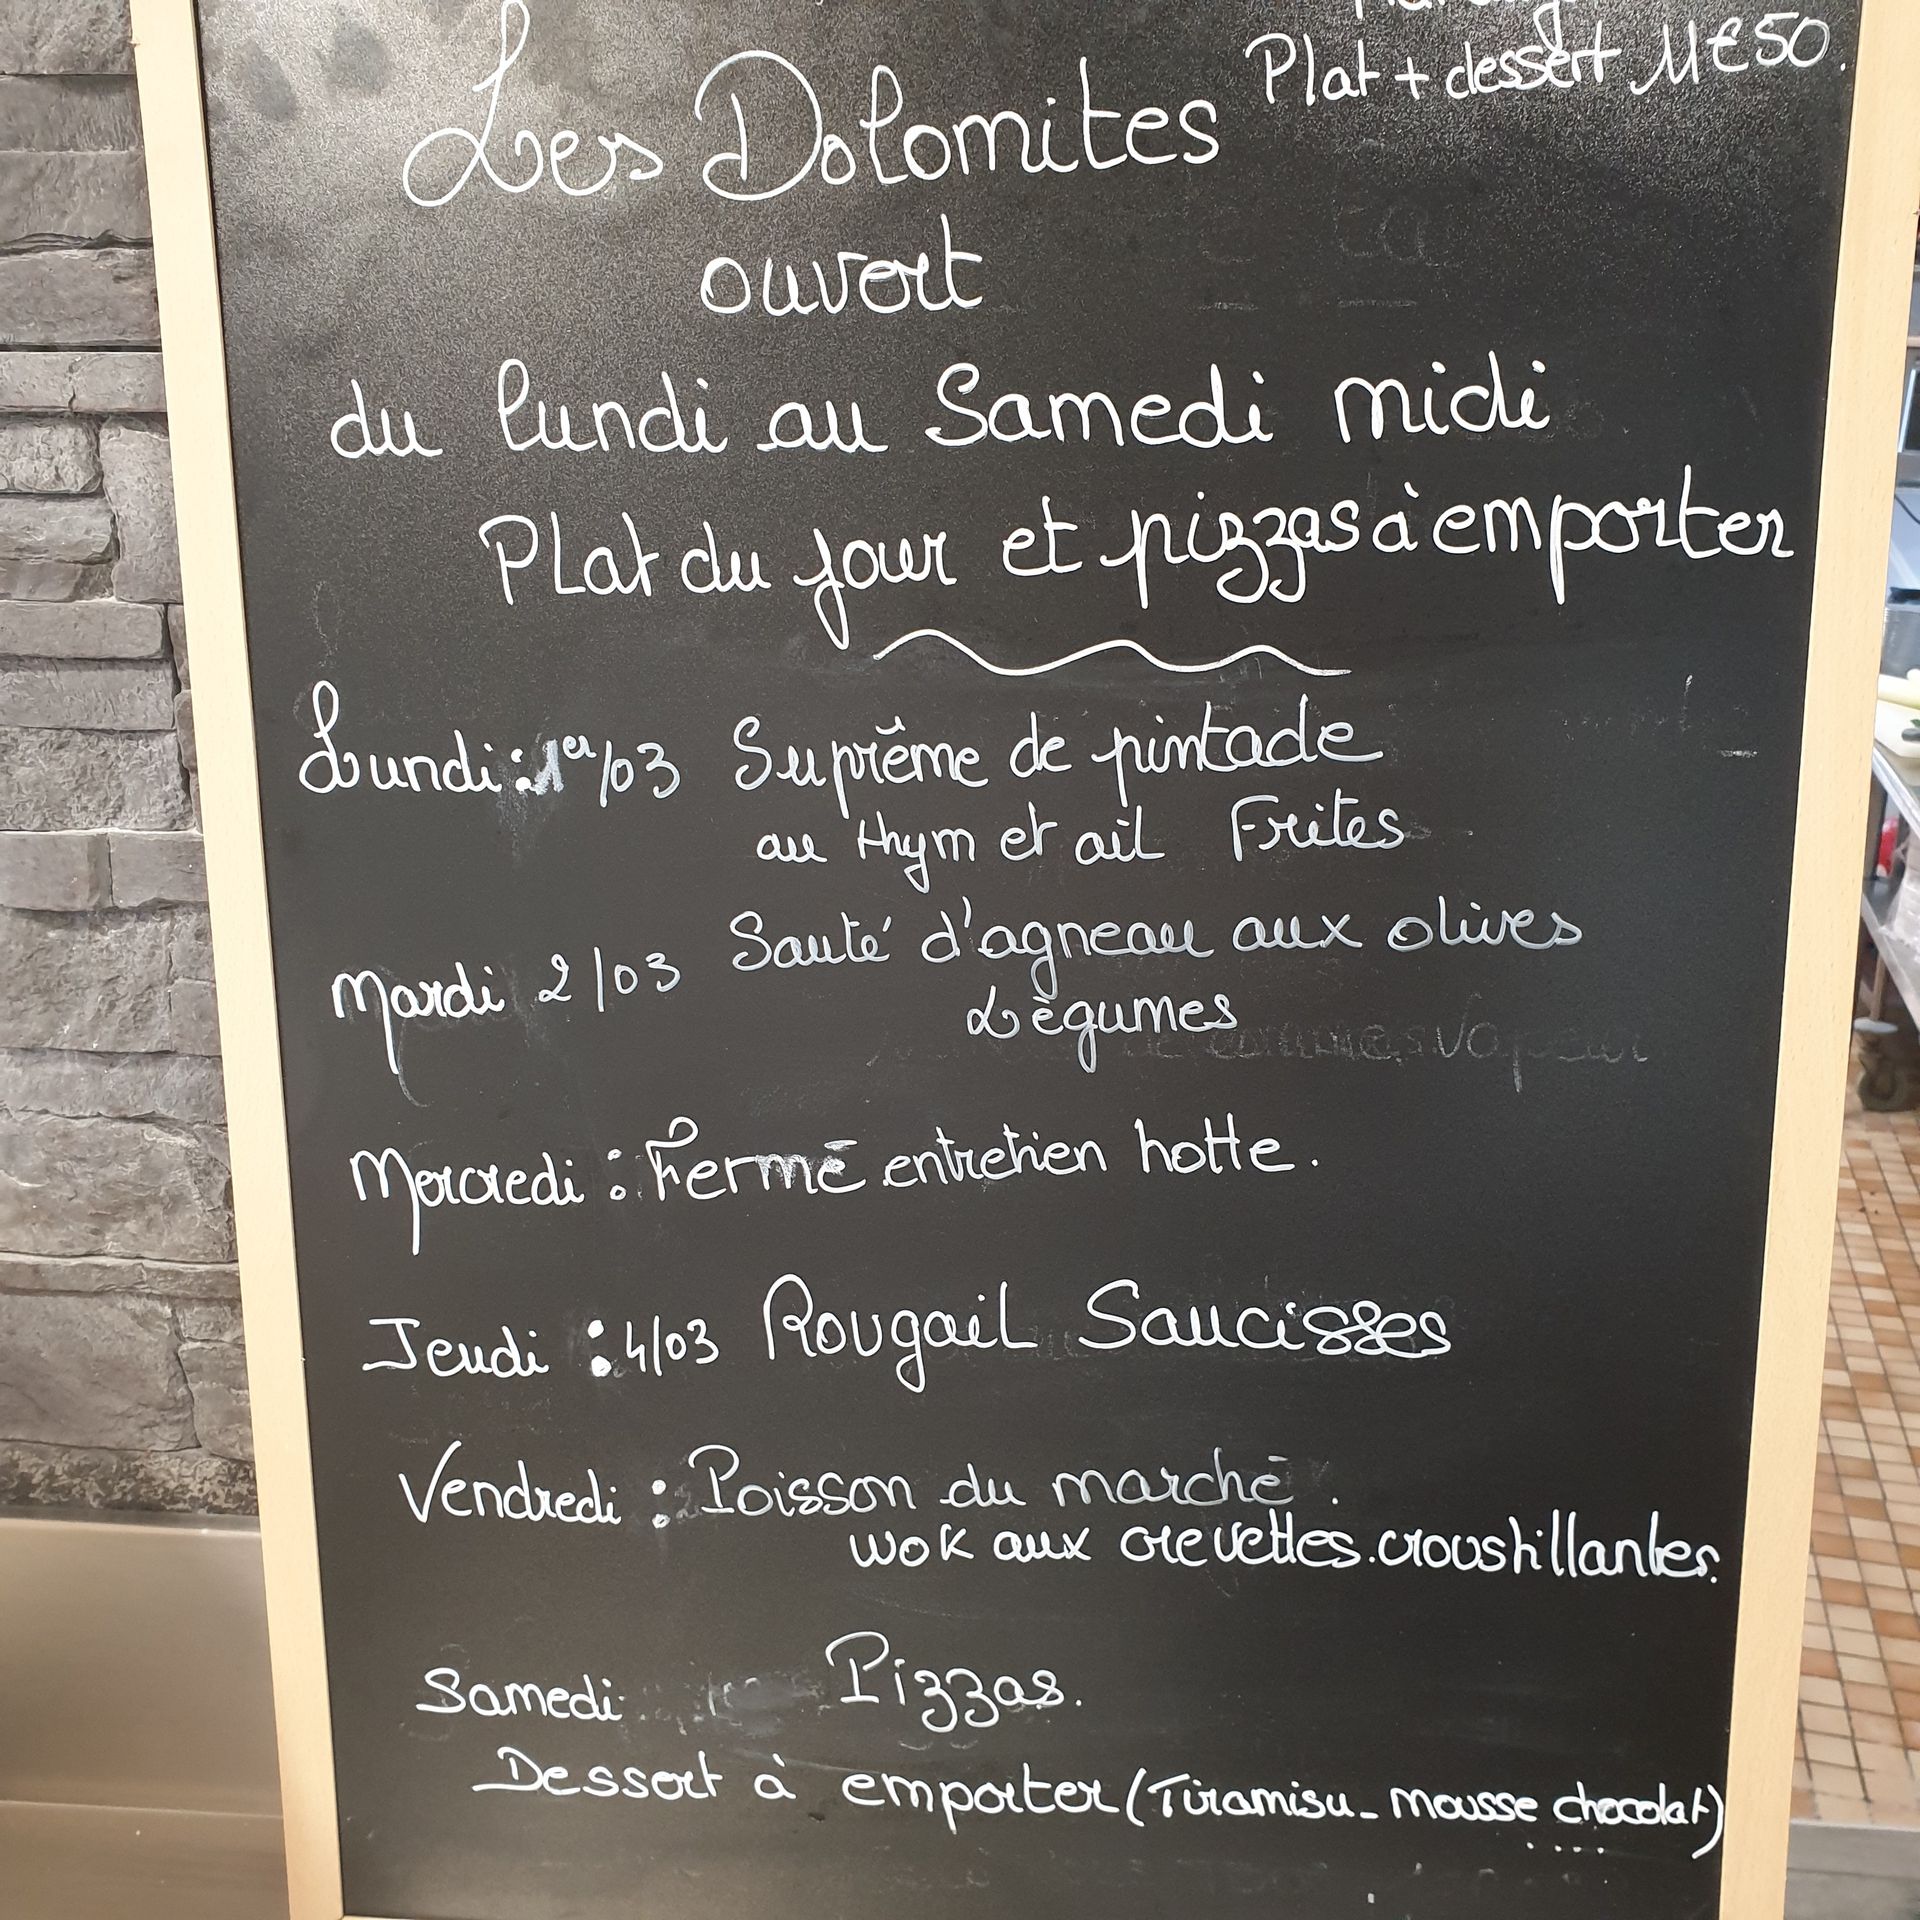 Plat + dessert 11€50.
Les Dolomites
ouvert
du lundi au Samedi midi
Plat du jour et pizzas à emporter
Lundi : 1er/03 Suprême de pintade
au thym et ail Frites
Mardi 2/03 Sauté d'agneau aux olives
Légumes
Mercredi : Fermé entretien hotte.
Jeudi : 4/03 Rougail Saucisses
Vendredi : Poisson du marché.
wok aux crevettes croustillantes.
Samedi Pizzas.
Dessert à emporter (Tiramisu - mousse chocolat)
....